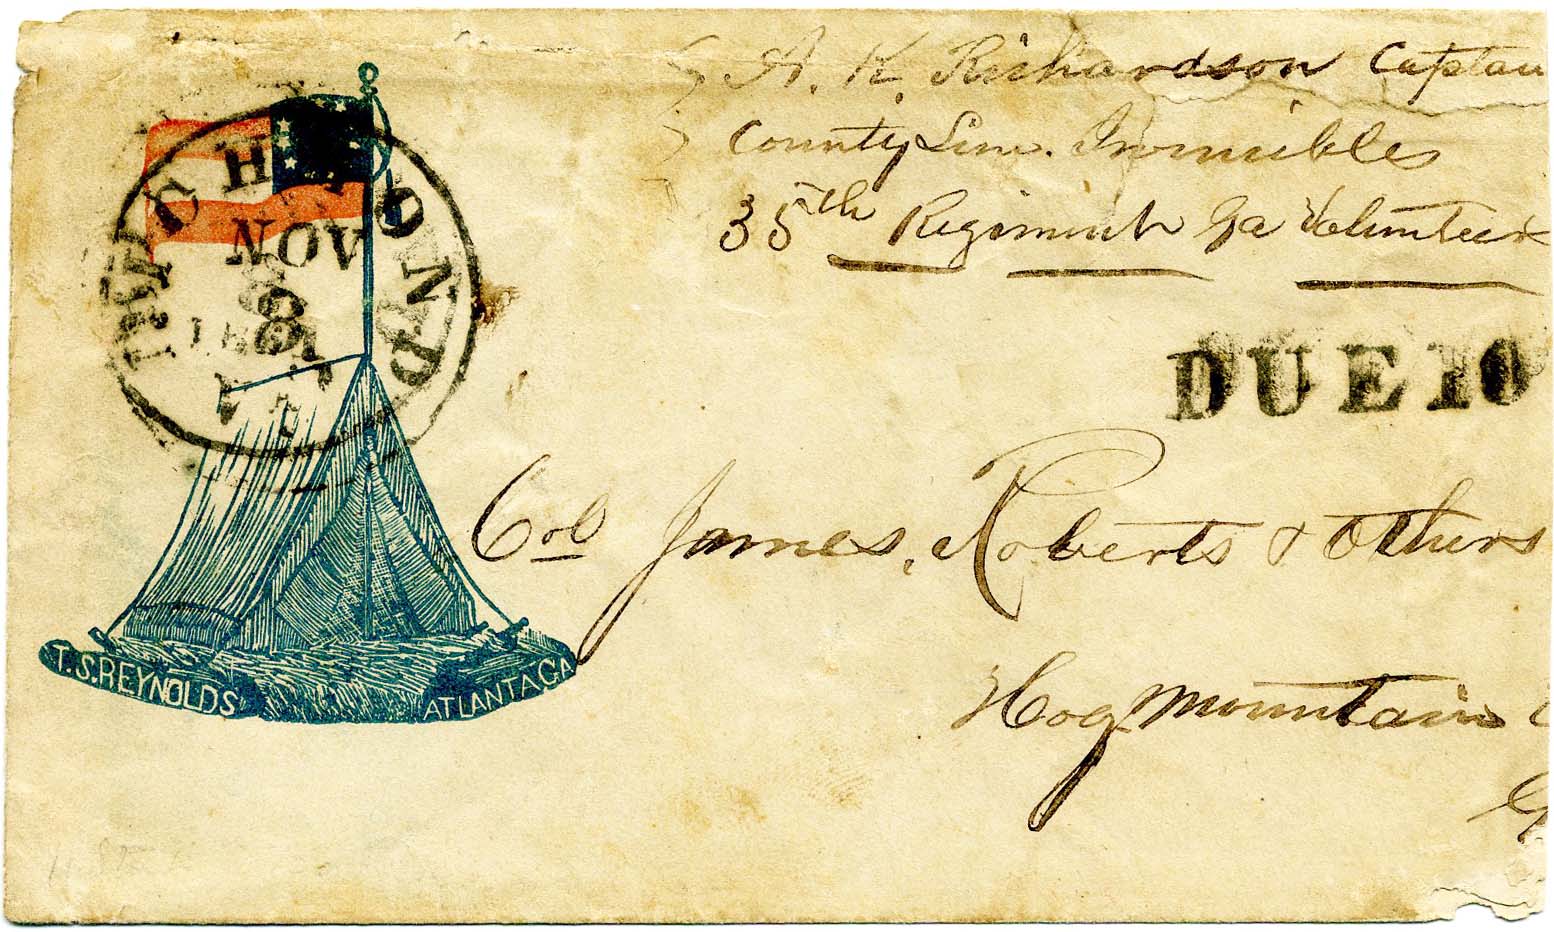 A. K. Richardson Captain
County Line Invincibles
35th Regiment Ga Volunteer
RICHMOND
NOV
8
1861
DUE 10
Col James, Roberts & Others
Hog Mountain
G
T. S. REYNOLDS ATLANTA GA